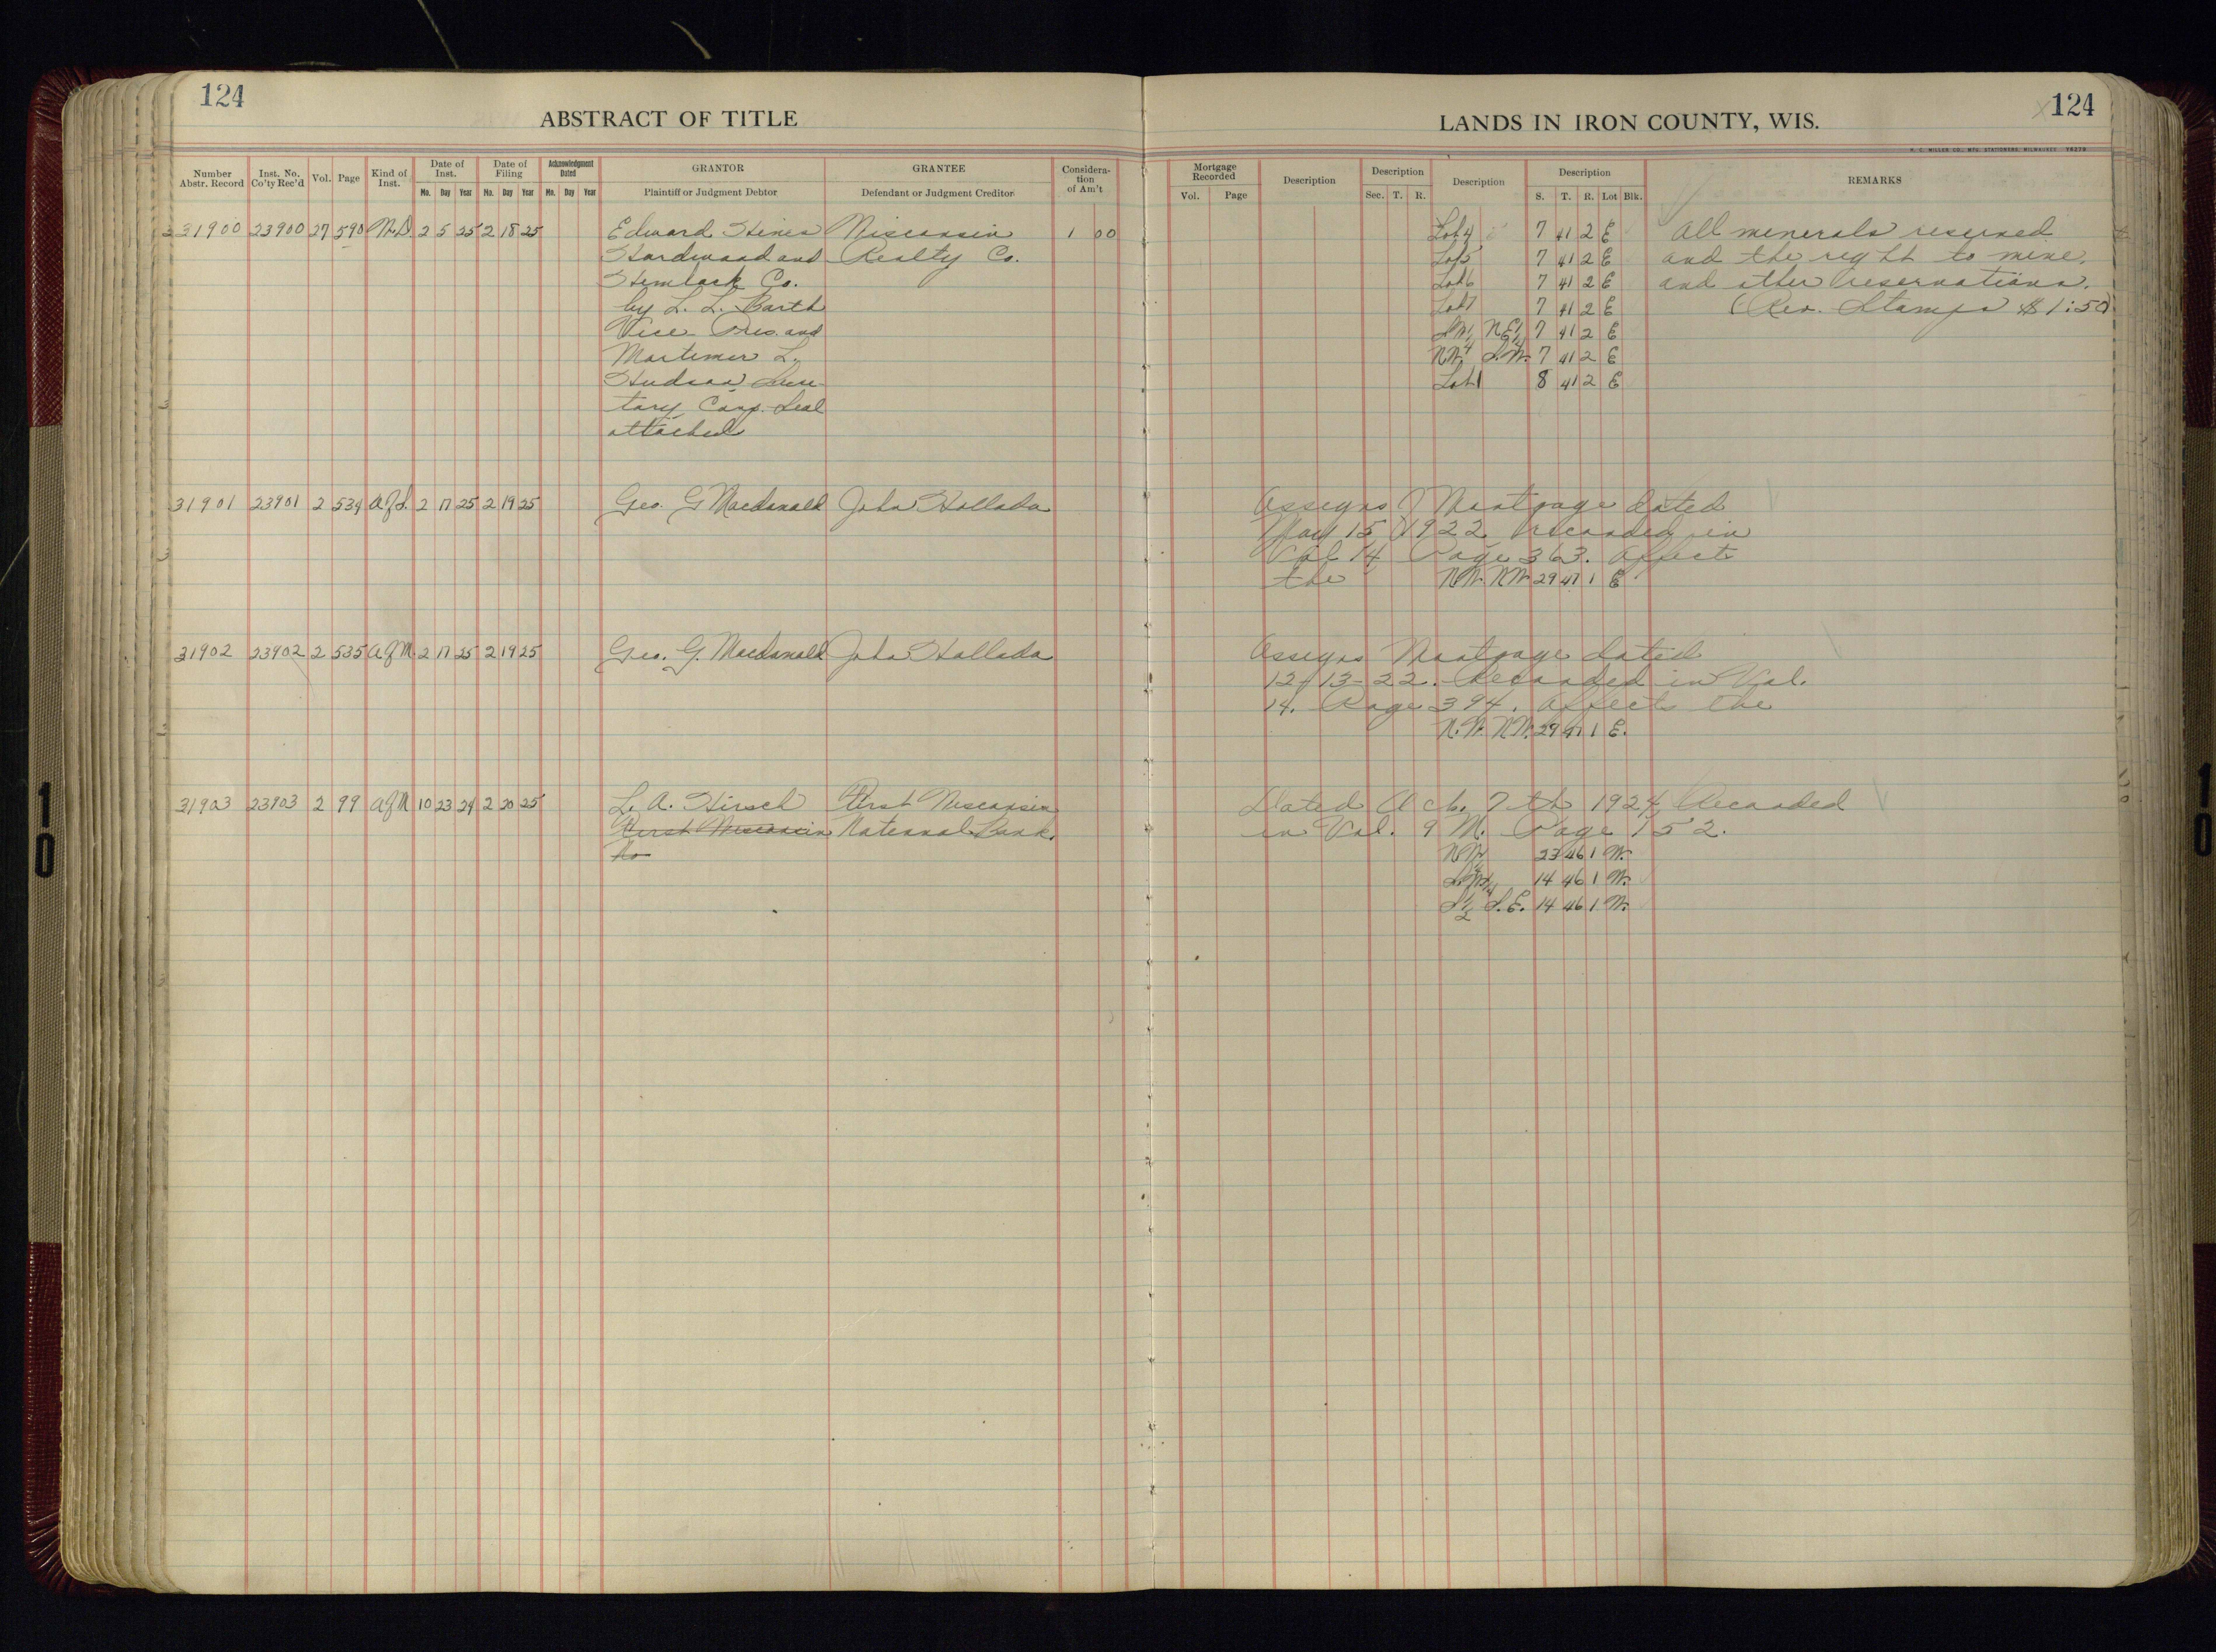 124
ABSTRACT OF TITLE
Number Abstr. Record Inst. No. Co'ty Rec'd Vol. Page Kind of Inst. Date of Inst. Mo. Day Year Date of Filing Mo. Day Year Acknowledgment Dated Mo. Day Year GRANTOR Plaintiff or Judgment Debtor GRANTEE Defendant or Judgment Creditor Considera-tion of Am't
31900 23900 27 590 W.D. 2 5 25 2 18 25 Edward Hines Wisconsin 1 00
Hardwood and Realty Co.
Hemlock Co.
by L. L. Barth
Vice Pres. and
Mortimer L.
Hudson Secre-
tary, Corp. Seal
attached
31901 23901 2 534 2 17 25 2 19 25 Geo. G Macdonald John Hollada
31902 23902 2 535 A of M 2 17 25 2 19 25 Geo. G. Macdonald John Hollada
31903 23903 2 99 A of M 10 23 24 2 20 25 L. A. Hirsch First Wisconsin
First Wisconsin National Bank.
124
LANDS IN IRON COUNTY, WIS.
H. C. MILLER CO., MFG. STATIONERS, MILWAUKEE
Mortgage Recorded Vol. Page Description Description Sec. T. R. Description Description S. T. R. Lot Blk. REMARKS
Lot 4 7 41 2 E All minerals reserved
Lot 5 7 41 2 E and the right to mine.
Lot 6 7 41 2 E and other reservations.
Lot 7 7 41 2 E (Rev. Stamps $1.50)
S.W. 1/4 N.E. 1/4 7 41 2 E
N.W. 1/4 S.W. 7 41 2 E
Lot 1 8 41 2 E
Assigns Mortgage dated
May 15, 1922 recorded in
Vol 14 Page 363. Affects
the N.W. N.W. 29 47 1 E
Assigns Mortgage dated
12-13-22. Recorded in Vol.
14. Page 394. Affects the
N.W. N.W. 29 47 1 E.
Dated Oct. 7th 1924, Recorded
in Vol. 9 M. Page 152.
N.W. 1/4 23 46 1 W.
S.W. 1/4 14 46 1 W.
S 1/2 S.E. 14 46 1 W.
10
10